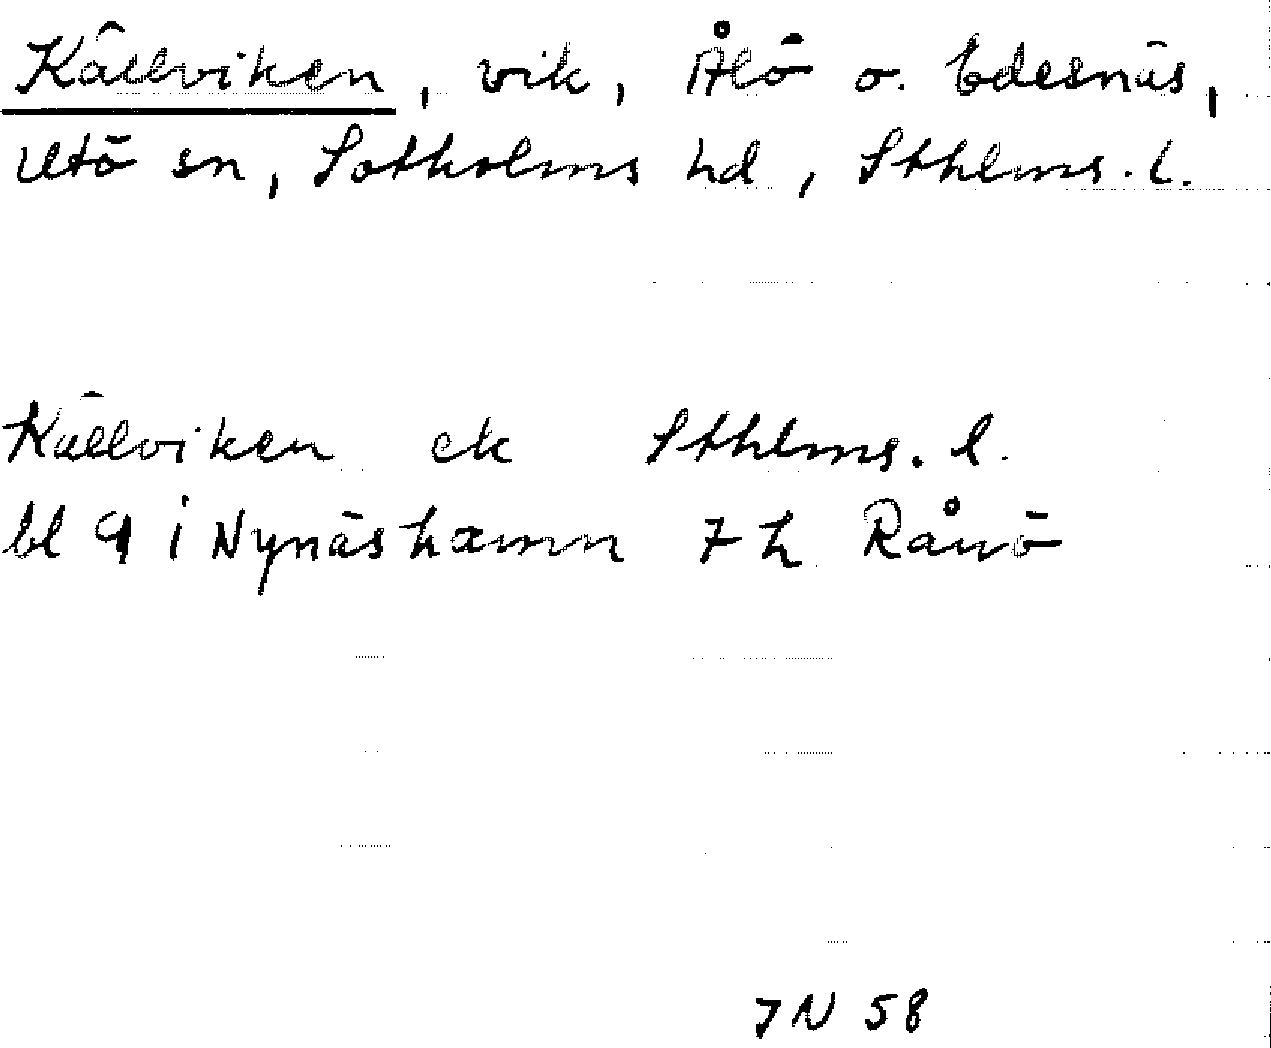 Källviken, vik, Ålö o. Edesnäs,
Utö sn, Sotholms hd, Sthlms. l.
Källviken ek Sthlms. l.
bl 9 i Nynäshamn 7 h Rånö
JN 58